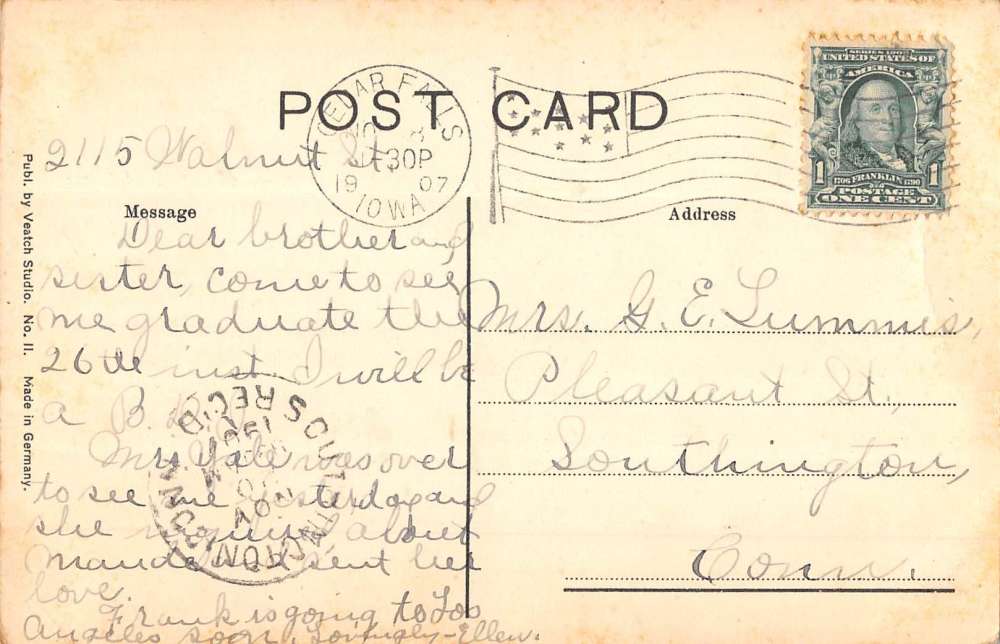 POST CARD
CEDAR FALLS
30P
19 07
IOWA
SERIES 1902
UNITED STATES OF
AMERICA
1706 FRANKLIN 1790
POSTAGE
1 1
ONE CENT
Publ. by Veatch Studio. No. 11. Made in Germany.
2115 Walnut St.
Message
Dear brother and
sister, come to see
me graduate the
26th inst. I will be
a B. D.
Mrs. Yale was over
to see me yesterday and
she inquired about
Maude and sent her
love.
Frank is going to Los
Angeles soon. Lovingly - Ellen.
SOUTHINGTON
CONN.
REC'D
1907
NOV
Address
Mrs. G. E. Lummis,
Pleasant St.,
Southington,
Conn.